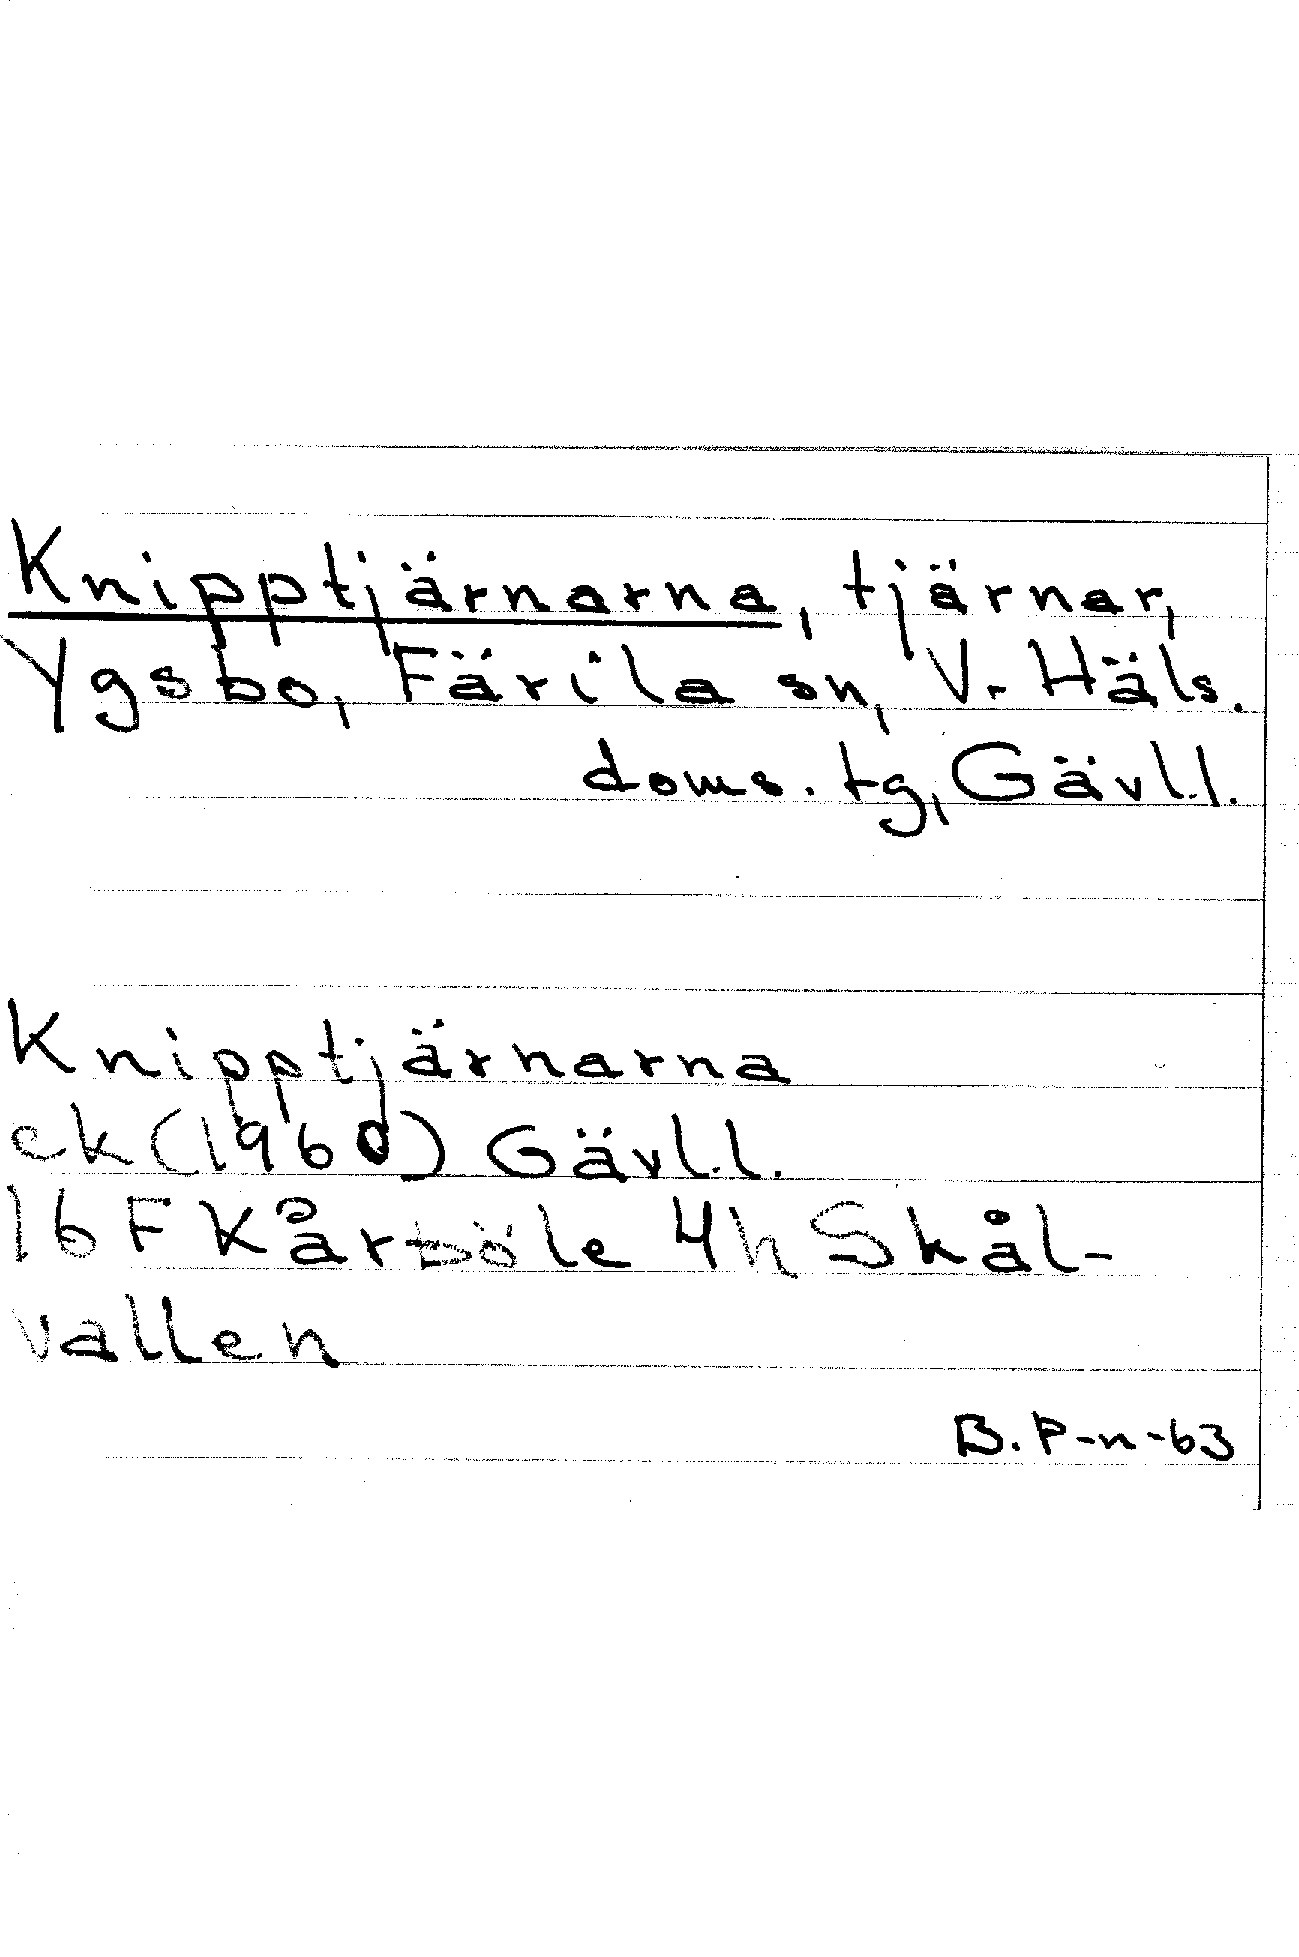 Knipptjärnarna, tjärnar,
Ygsbo, Färila sn, V. Häls.
doms. tg, Gävl.l.
Knipptjärnarna
ek (1960) Gävl.l.
16 F Kårböle 4h Skål-
vallen
B. P-n-63